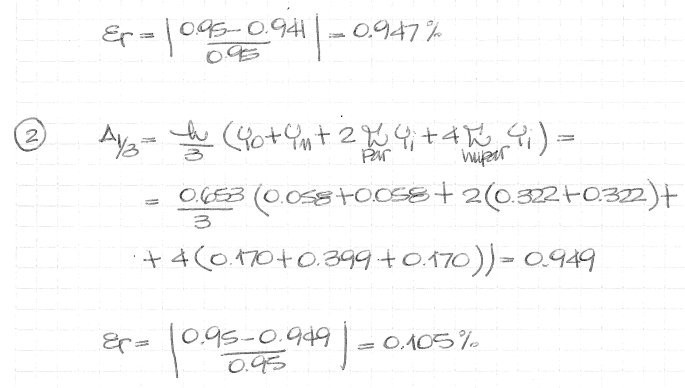 εr = | 0.95 - 0.941 / 0.95 | = 0.947%
② A1/3 = h/3 (y0 + yn + 2 Σ par yi + 4 Σ impar yi) =
= 0.653/3 (0.058 + 0.058 + 2(0.322 + 0.322) +
+ 4(0.170 + 0.399 + 0.170)) = 0.949
εr = | 0.95 - 0.949 / 0.95 | = 0.105%